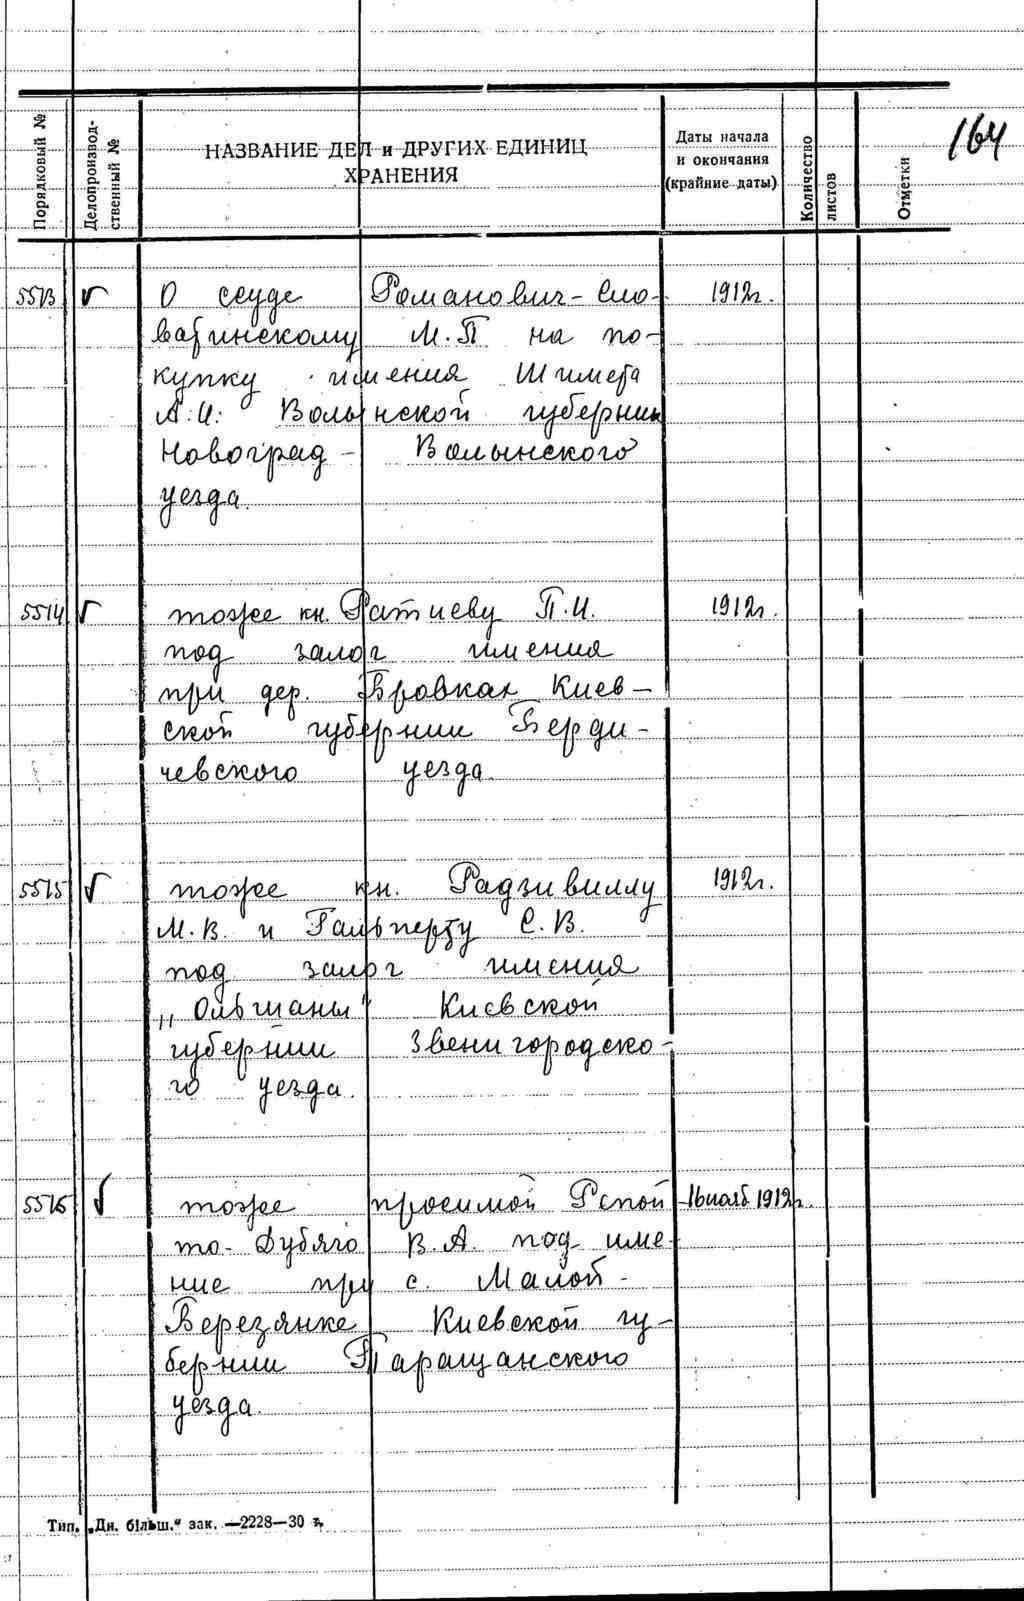 164
Порядковый №
Делопроизвод-
ственный №
НАЗВАНИЕ ДЕЛ и ДРУГИХ ЕДИНИЦ
ХРАНЕНИЯ
Даты начала
и окончания
(крайние даты)
Количество
листов
Отметки
5513 О ссуде Романович-Сло- 1912г.
ватинскому М.П на по-
купку имения Шимера
А.И. Волынской губернии
Новоград- Волынского
уезда.
5514 тоже кн. Ратиеву П.И. 1912г.
под залог имения
при дер. Бровках Киев-
ской губернии Берди-
чевского уезда.
5515 тоже кн. Радзивиллу 1912г.
М.В. и Гальперту С.В.
под залог имения
„Ольшаны" Киевской
губернии Звенигородско-
го уезда.
5516 тоже просимой Репой 16 нояб 1912г.
то- Дубяго В.А. под име-
ние при с. Малой-
Березянке Киевской гу-
бернии Таращанского
уезда.
Тип. „Дн. більш." зак. —2228—30